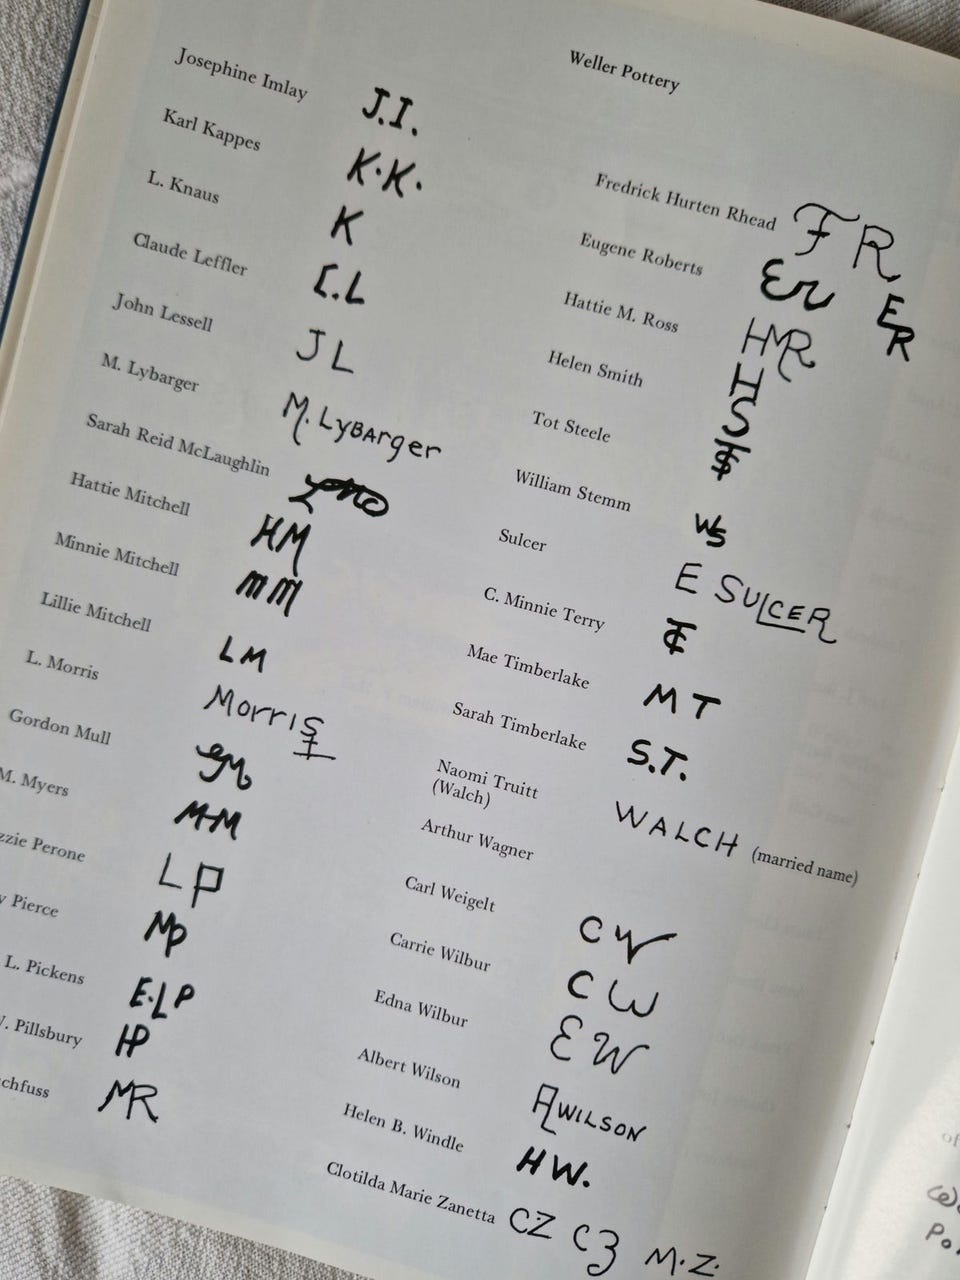 Weller Pottery
Josephine Imlay J.I.
Karl Kappes K.K.
L. Knaus K
Claude Leffler C.L
John Lessell JL
M. Lybarger M. LyBArger
Sarah Reid McLaughlin
Hattie Mitchell HM
Minnie Mitchell MM
Lillie Mitchell LM
L. Morris MorrIS
Gordon Mull GM
M. Myers MM
zzie Perone LP
y Pierce MP
L. Pickens E.LP
. Pillsbury HP
chfuss MR
Fredrick Hurten Rhead FR
Eugene Roberts Er ER
Hattie M. Ross HMR
Helen Smith HS
Tot Steele TS
William Stemm WS
Sulcer E SULCER
C. Minnie Terry CT
Mae Timberlake MT
Sarah Timberlake S.T.
Naomi Truitt WALCH (married name)
(Walch)
Arthur Wagner
Carl Weigelt CW
Carrie Wilbur CW
Edna Wilbur EW
Albert Wilson AWILSON
Helen B. Windle HW.
Clotilda Marie Zanetta CZ CZ M.Z.
of